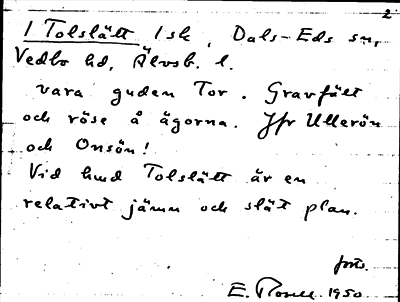 2
1 Tolslätt 1 sk, Dals-Eds sn,
Vedbo hd, Älvsb. l.
vara guden Tor. Gravfält
och röse å ägorna. Jfr Ullerön
och Onsön!
Vid hmd Tolslätt är en
relativt jämn och slät plan.
forts.
E. Rosell. 1950